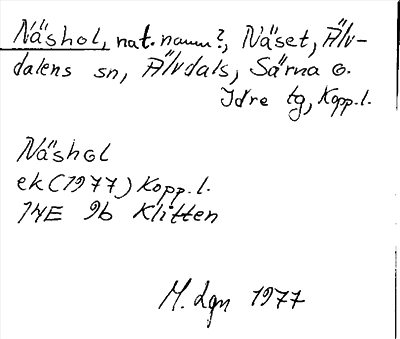 Näshol, nat.namn?, Näset, Älv-
dalens sn, Älvdals, Särna o.
Idre tg, Kopp.l.
Näshol
ek (1977) Kopp.l.
14E 9b Klitten
M. Lgn 1977